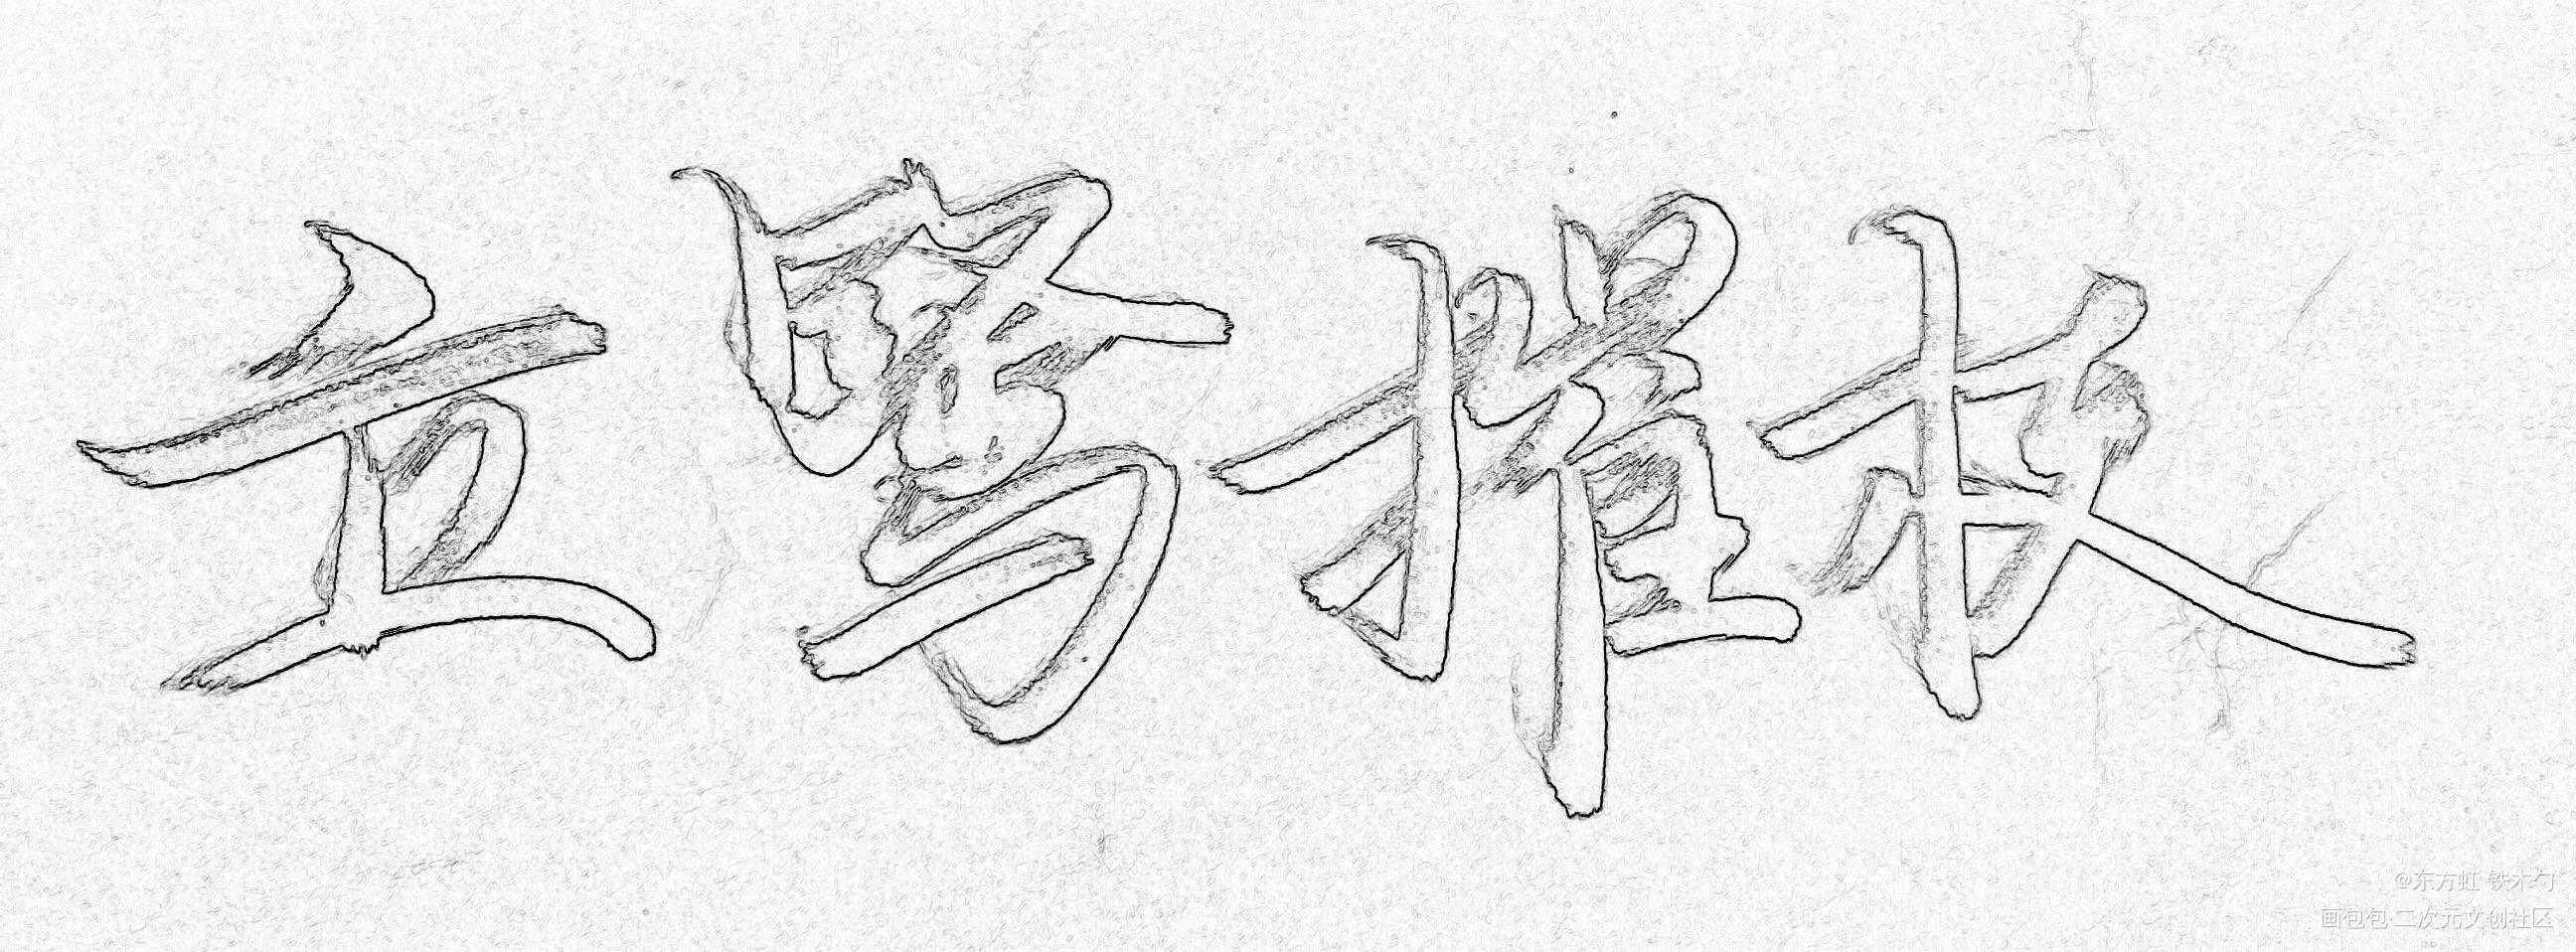 立鹜摧枝
@东方虹 铁木勺
画包包·二次元文创社区